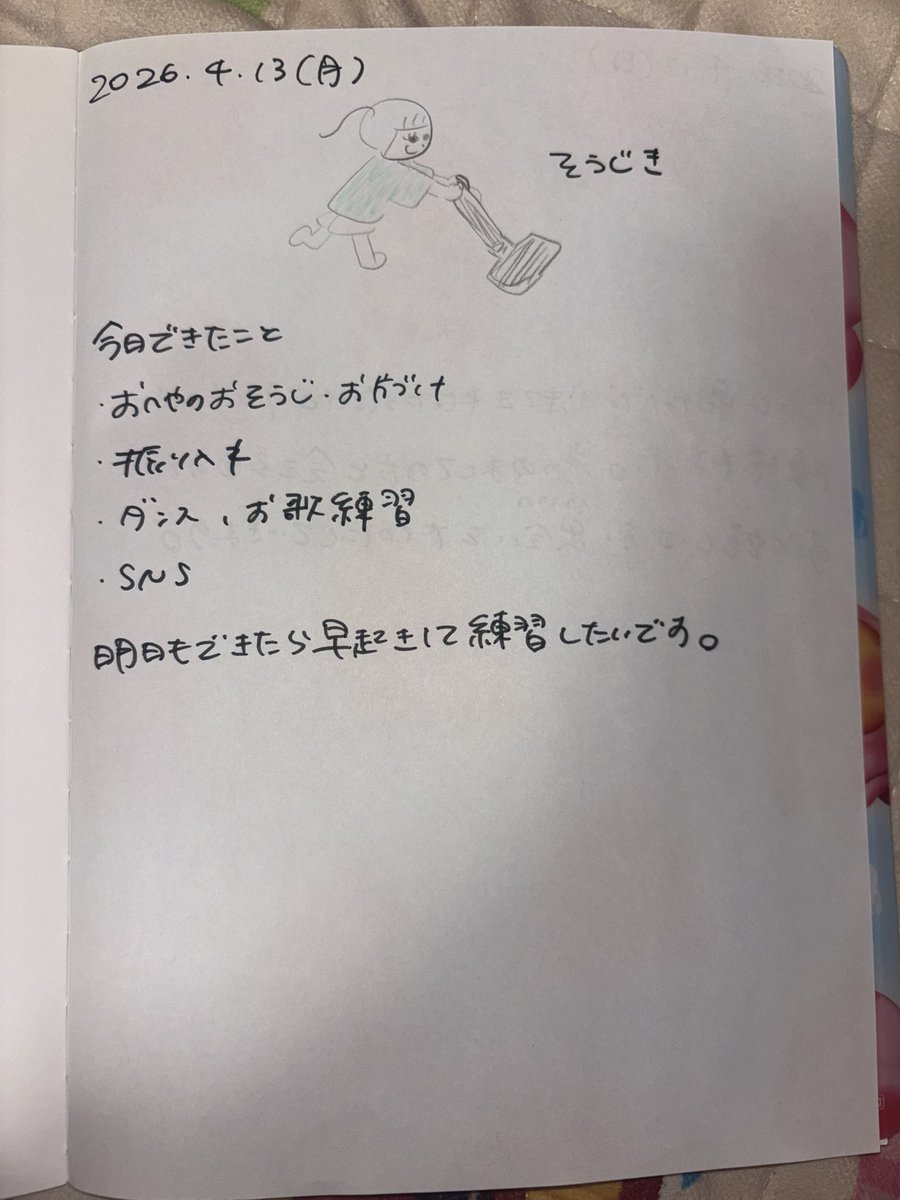 2026.4.13(月)
そうじき
今日できたこと
・おへやのおそうじ・お片づけ
・振り入れ
・ダンス、お歌練習
・SNS
明日もできたら早起きして練習したいです。